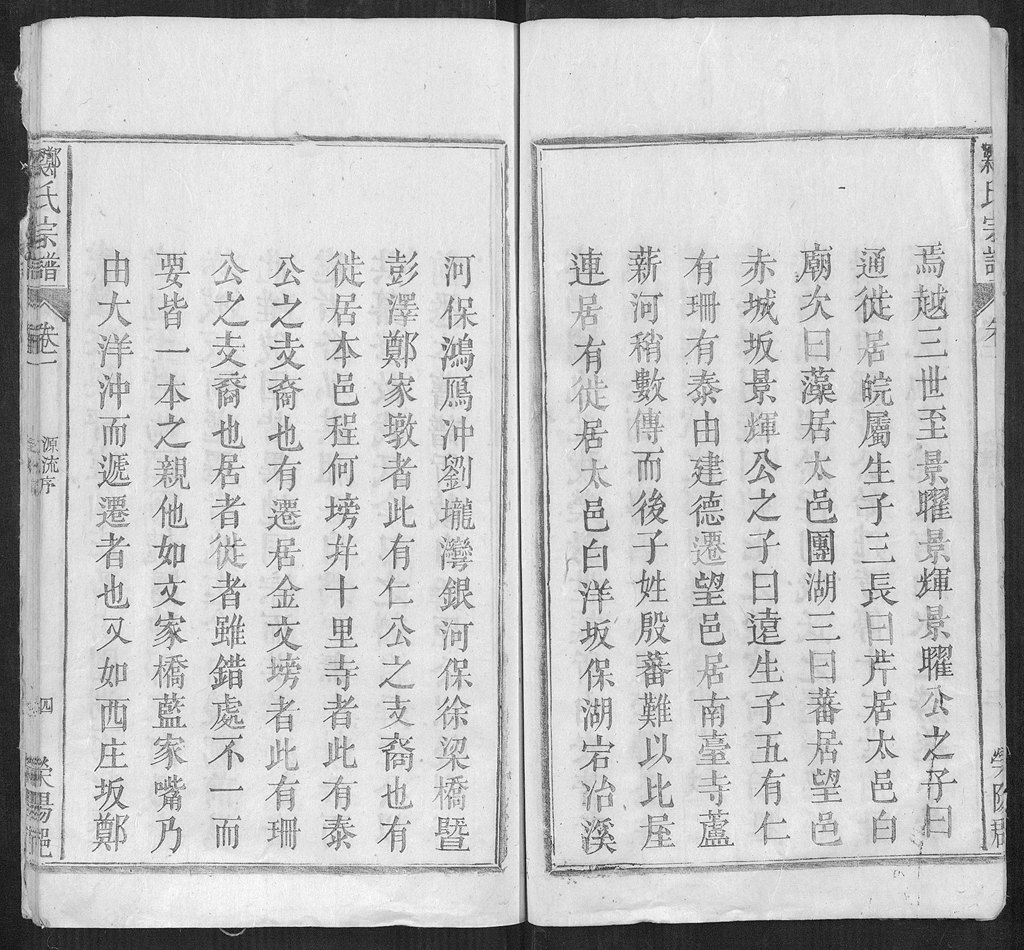 焉越三世至景曜景輝景曜公之子曰
通徙居皖屬生子三長曰芹居太邑白
廟次曰藻居太邑團湖三曰蕃居望邑
赤城坂景輝公之子曰遠生子五有仁
有珊有泰由建德遷望邑居南臺寺蘆
薪河稍數傳而後子姓殷蕃難以比屋
連居有徙居太邑白洋坂保湖宕冶溪
河保鴻鴈沖劉壠灣銀河保徐梁橋暨
彭澤鄭家墩者此有仁公之支裔也有
徙居本邑程何塝并十里寺者此有泰
公之支裔也有遷居金文塝者此有珊
公之支裔也居者徙者雖錯處不一而
要皆一本之親他如文家橋藍家嘴乃
由大洋沖而遞遷者也又如西庄坂鄭
鄭氏宗譜
卷二
源流序
四